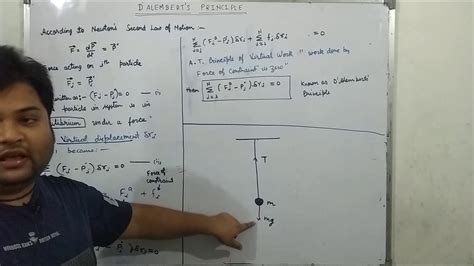 DALEMBERT'S PRINCIPLE
According to Newton's Second Law of Motion :-
F = dP/dt = Ṗ
Force acting on jth particle
Fj = Ṗj
(Fj - Ṗj) = 0 — (i)
particle in system is in
under a force
Virtual displacement δrj
because :-
(Fj - Ṗj) δrj = 0 — (ii)
Force of
constraint
Fjᵃ + fj
= 0
N Σ j=1 (Fjᵃ - Ṗj) δrj + N Σ j=1 fj δrj = 0
A.T. Principle of Virtual Work " work done by
Force of Constraint is zero"
then N Σ j=1 (Fjᵃ - Ṗj) δrj = 0 Known as D'Alembert's
Principle
T
m
mg